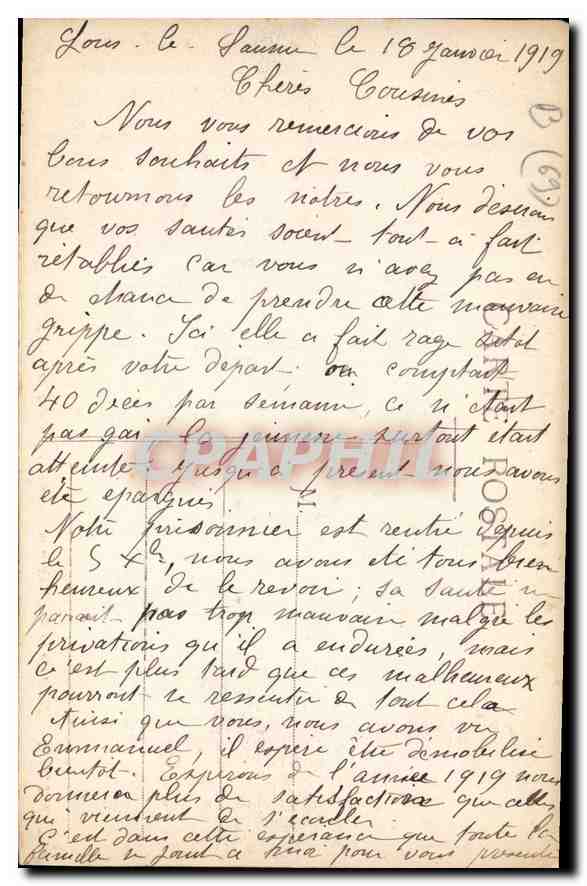 Lons-le-Saunier le 18 Janvier 1919
Chères Cousines
Nous vous remercions de vos
bons souhaits et nous vous
retournons les nôtres. Nous désirons
que vos santés soient tout-à fait
rétablies car vous n'avez pas eu
de chance de prendre cette mauvaise
grippe. Ici elle a fait rage sitôt
après votre départ. on comptait
40 décès par semaine, ce n'était
pas gai la jeunesse surtout était
atteinte. Jusqu'à présent nous avons
été épargnés
Notre prisonnier est rentré depuis
le 5 Xbre, nous avons été tous bien
heureux de le revoir ; sa santé ne
parait pas trop mauvaise malgré les
privations qu'il a endurées, mais
c'est plus tard que ces malheureux
pourront se ressentir de tout cela
Ainsi que vous, nous avons vu
Emmanuel, il espère être démobilisé
bientôt. Espérons que l'année 1919 nous
donnera plus de satisfactions que celles
qui viennent de s'écouler.
C'est dans cette espérance que toute la
famille se joint à moi pour vous présenter
B (69)
CARTE POSTALE
CPAPHIL